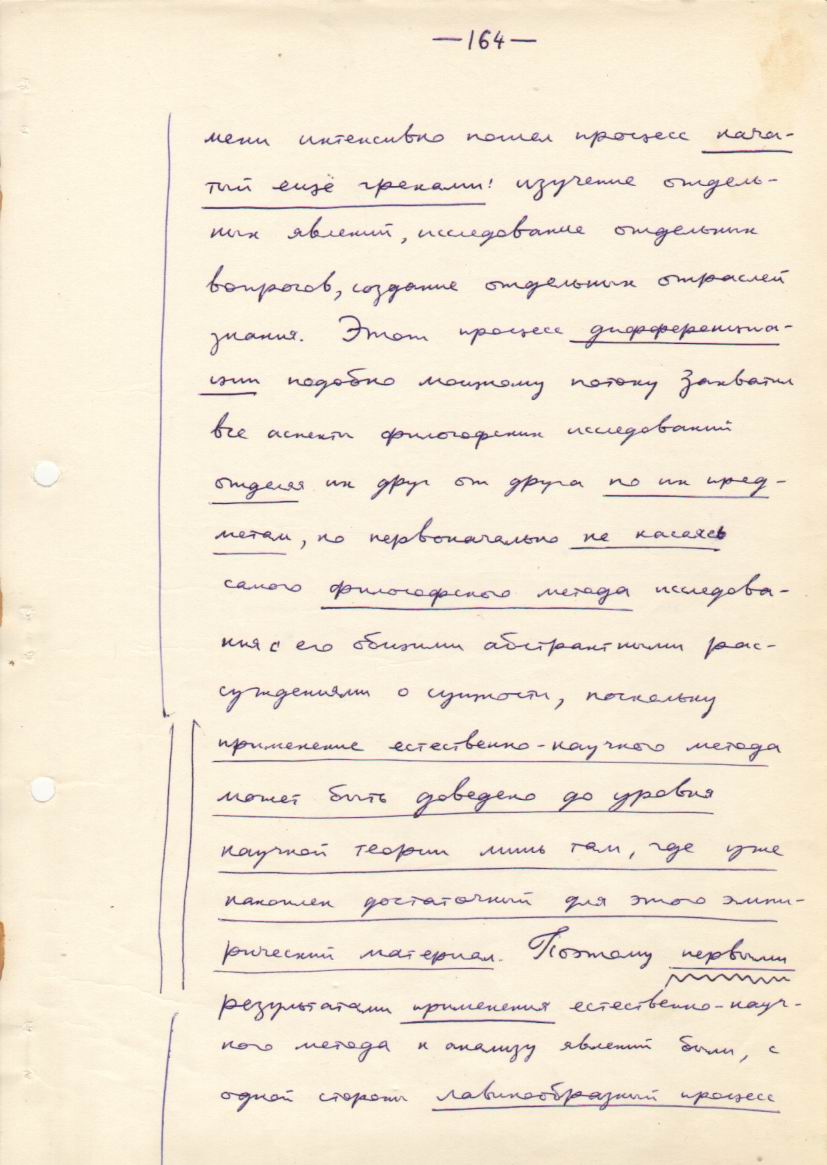 —164—
мени интенсивно пошел процесс нача-
тый ещё греками: изучение отдель-
ных явлений, исследование отдельных
вопросов, создание отдельных отраслей
знания. Этот процесс дифференциа-
ции подобно мощному потоку захватил
все аспекты философских исследований
отделяя их друг от друга по их пред-
метам, но первоначально не касаясь
самого философского метода исследова-
ния с его общими абстрактными рас-
суждениями о сущности, поскольку
применение естественно-научного метода
может быть доведено до уровня
научной теории лишь там, где уже
накоплен достаточный для этого эмпи-
рический материал. Поэтому первыми
результатами применения естественно-науч-
ного метода к анализу явлений были, с
одной стороны лавинообразный процесс